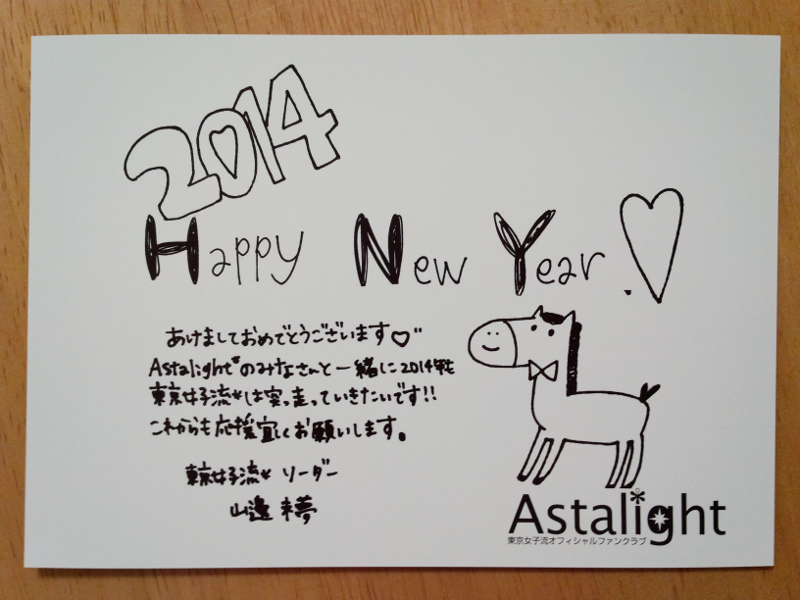 2014
Happy New Year!
あけましておめでとうございます♡
Astalight*のみなさんと一緒に2014年も
東京女子流*は突っ走っていきたいです!!
これからも応援宜しくお願いします。
東京女子流* リーダー
山邊 未夢
Astalight
東京女子流オフィシャルファンクラブ